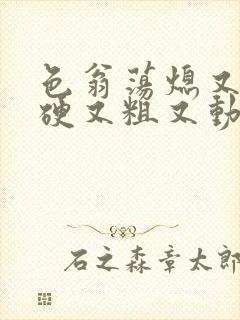 色翁荡熄又
硬又粗又動
石之森章太郎